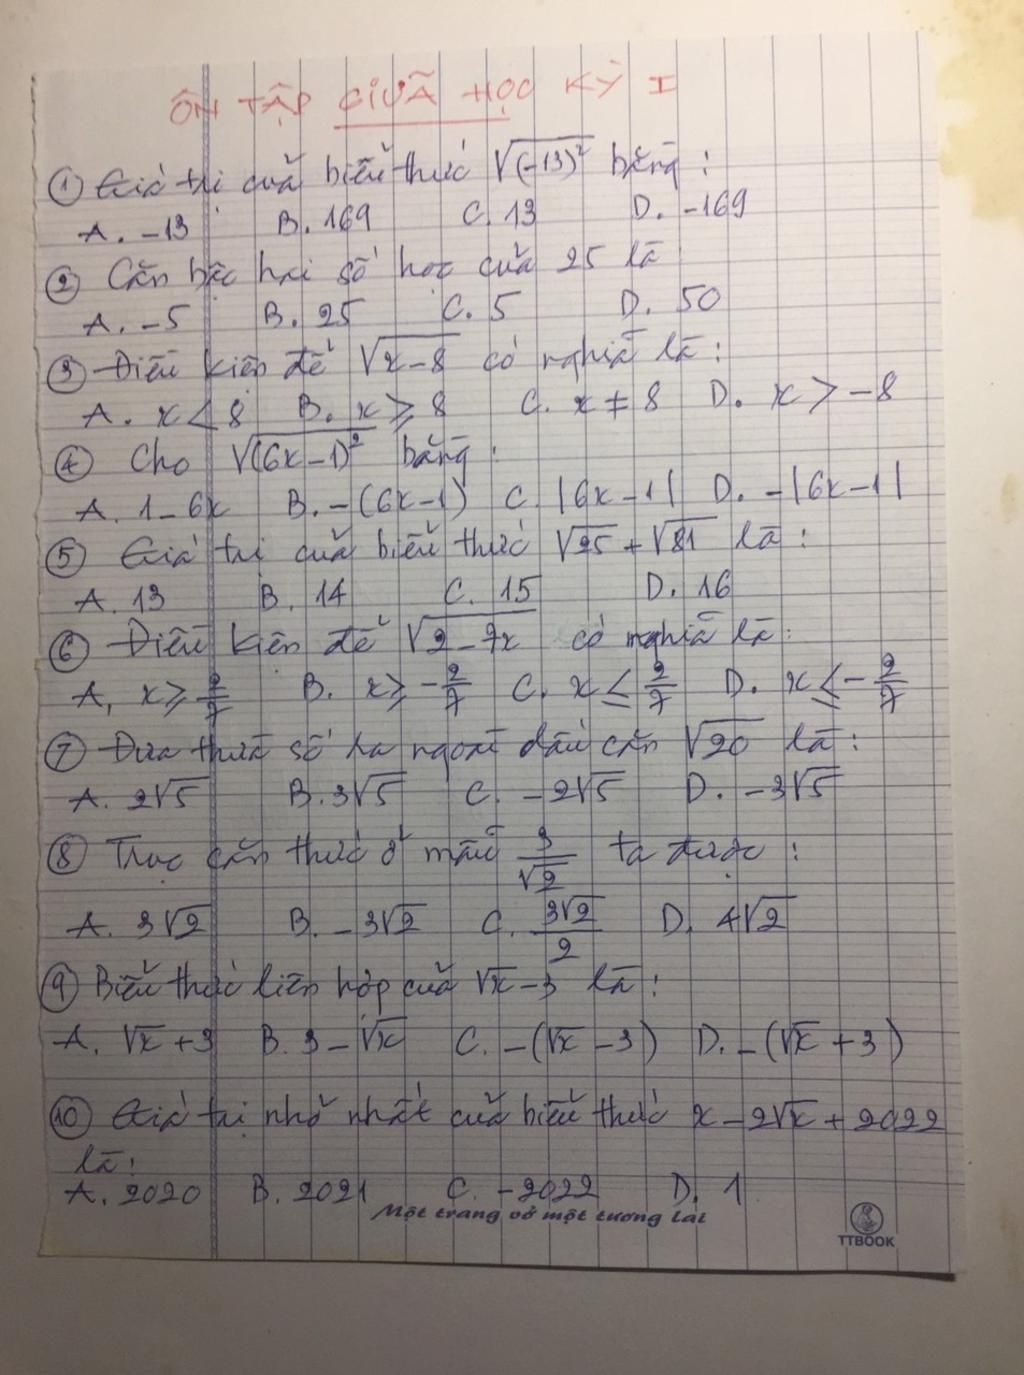 ÔN TẬP GIỮA HỌC KỲ I
① Giá trị của biểu thức √(-13)² bằng:
A. -13 B. 169 C. 13 D. -169
② Căn bậc hai số học của 25 là
A. -5 B. 25 C. 5 D. 50
③ Điều kiện để √x-8 có nghĩa là:
A. x < 8 B. x ≥ 8 C. x ≠ 8 D. x > -8
④ Cho √(6x-1)² bằng:
A. 1-6x B. -(6x-1) C. |6x-1| D. -|6x-1|
⑤ Giá trị của biểu thức √25 + √81 là:
A. 13 B. 14 C. 15 D. 16
⑥ Điều kiện để √2-7x có nghĩa là:
A, x ≥ 2/7 B. x ≥ -2/7 C. x ≤ 2/7 D. x ≤ -2/7
⑦ Đưa thừa số ra ngoài dấu căn √20 là:
A. 2√5 B. 3√5 C. -2√5 D. -3√5
⑧ Trục căn thức ở mẫu 3/√2 ta được:
A. 3√2 B. -3√2 C. 3√2/2 D. 4√2
⑨ Biểu thức liên hợp của √x-3 là:
A. √x+3 B. 3-√x C. -(√x-3) D. -(√x+3)
⑩ Giá trị nhỏ nhất của biểu thức x-2√x+2022
là:
A. 2020 B. 2021 C. -2022 D. 1
Một trang vở một tương lai
TTBOOK